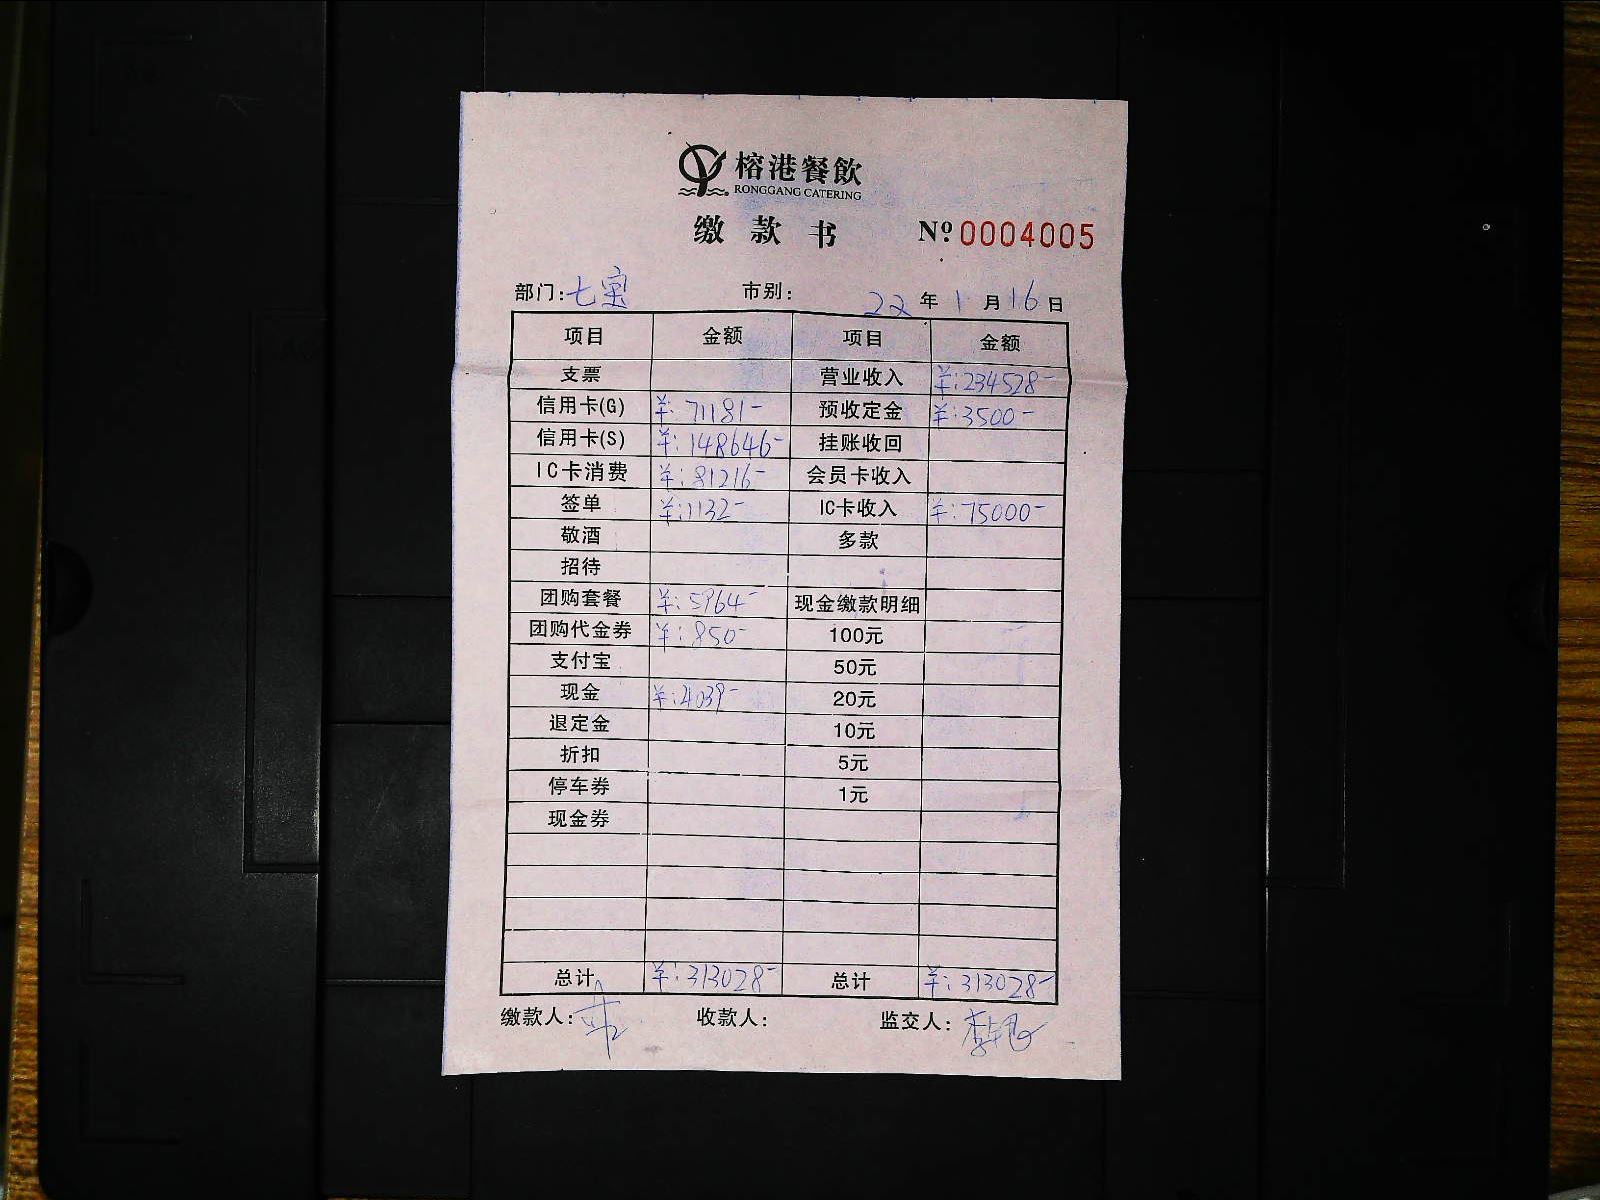 榕港餐飲
RONGGANG CATERING
缴款书 Nº 0004005
部门:七宝 市别: 22年1月16日
项目 金额 项目 金额
支票 营业收入 ¥:234528-
信用卡(G) ¥:71181- 预收定金 ¥:3500-
信用卡(S) ¥:148646- 挂账收回
IC卡消费 ¥:81216- 会员卡收入
签单 ¥:1132- IC卡收入 ¥:75000-
敬酒 多款
招待
团购套餐 ¥:5964- 现金缴款明细
团购代金券 ¥:850- 100元
支付宝 50元
现金 ¥:4039- 20元
退定金 10元
折扣 5元
停车券 1元
现金券
总计 ¥:313028- 总计 ¥:313028-
缴款人: 收款人: 监交人: